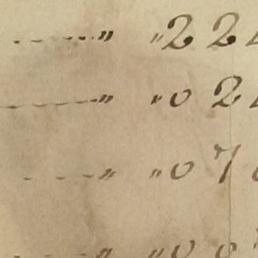 " "22
" "02
" "07
" "0